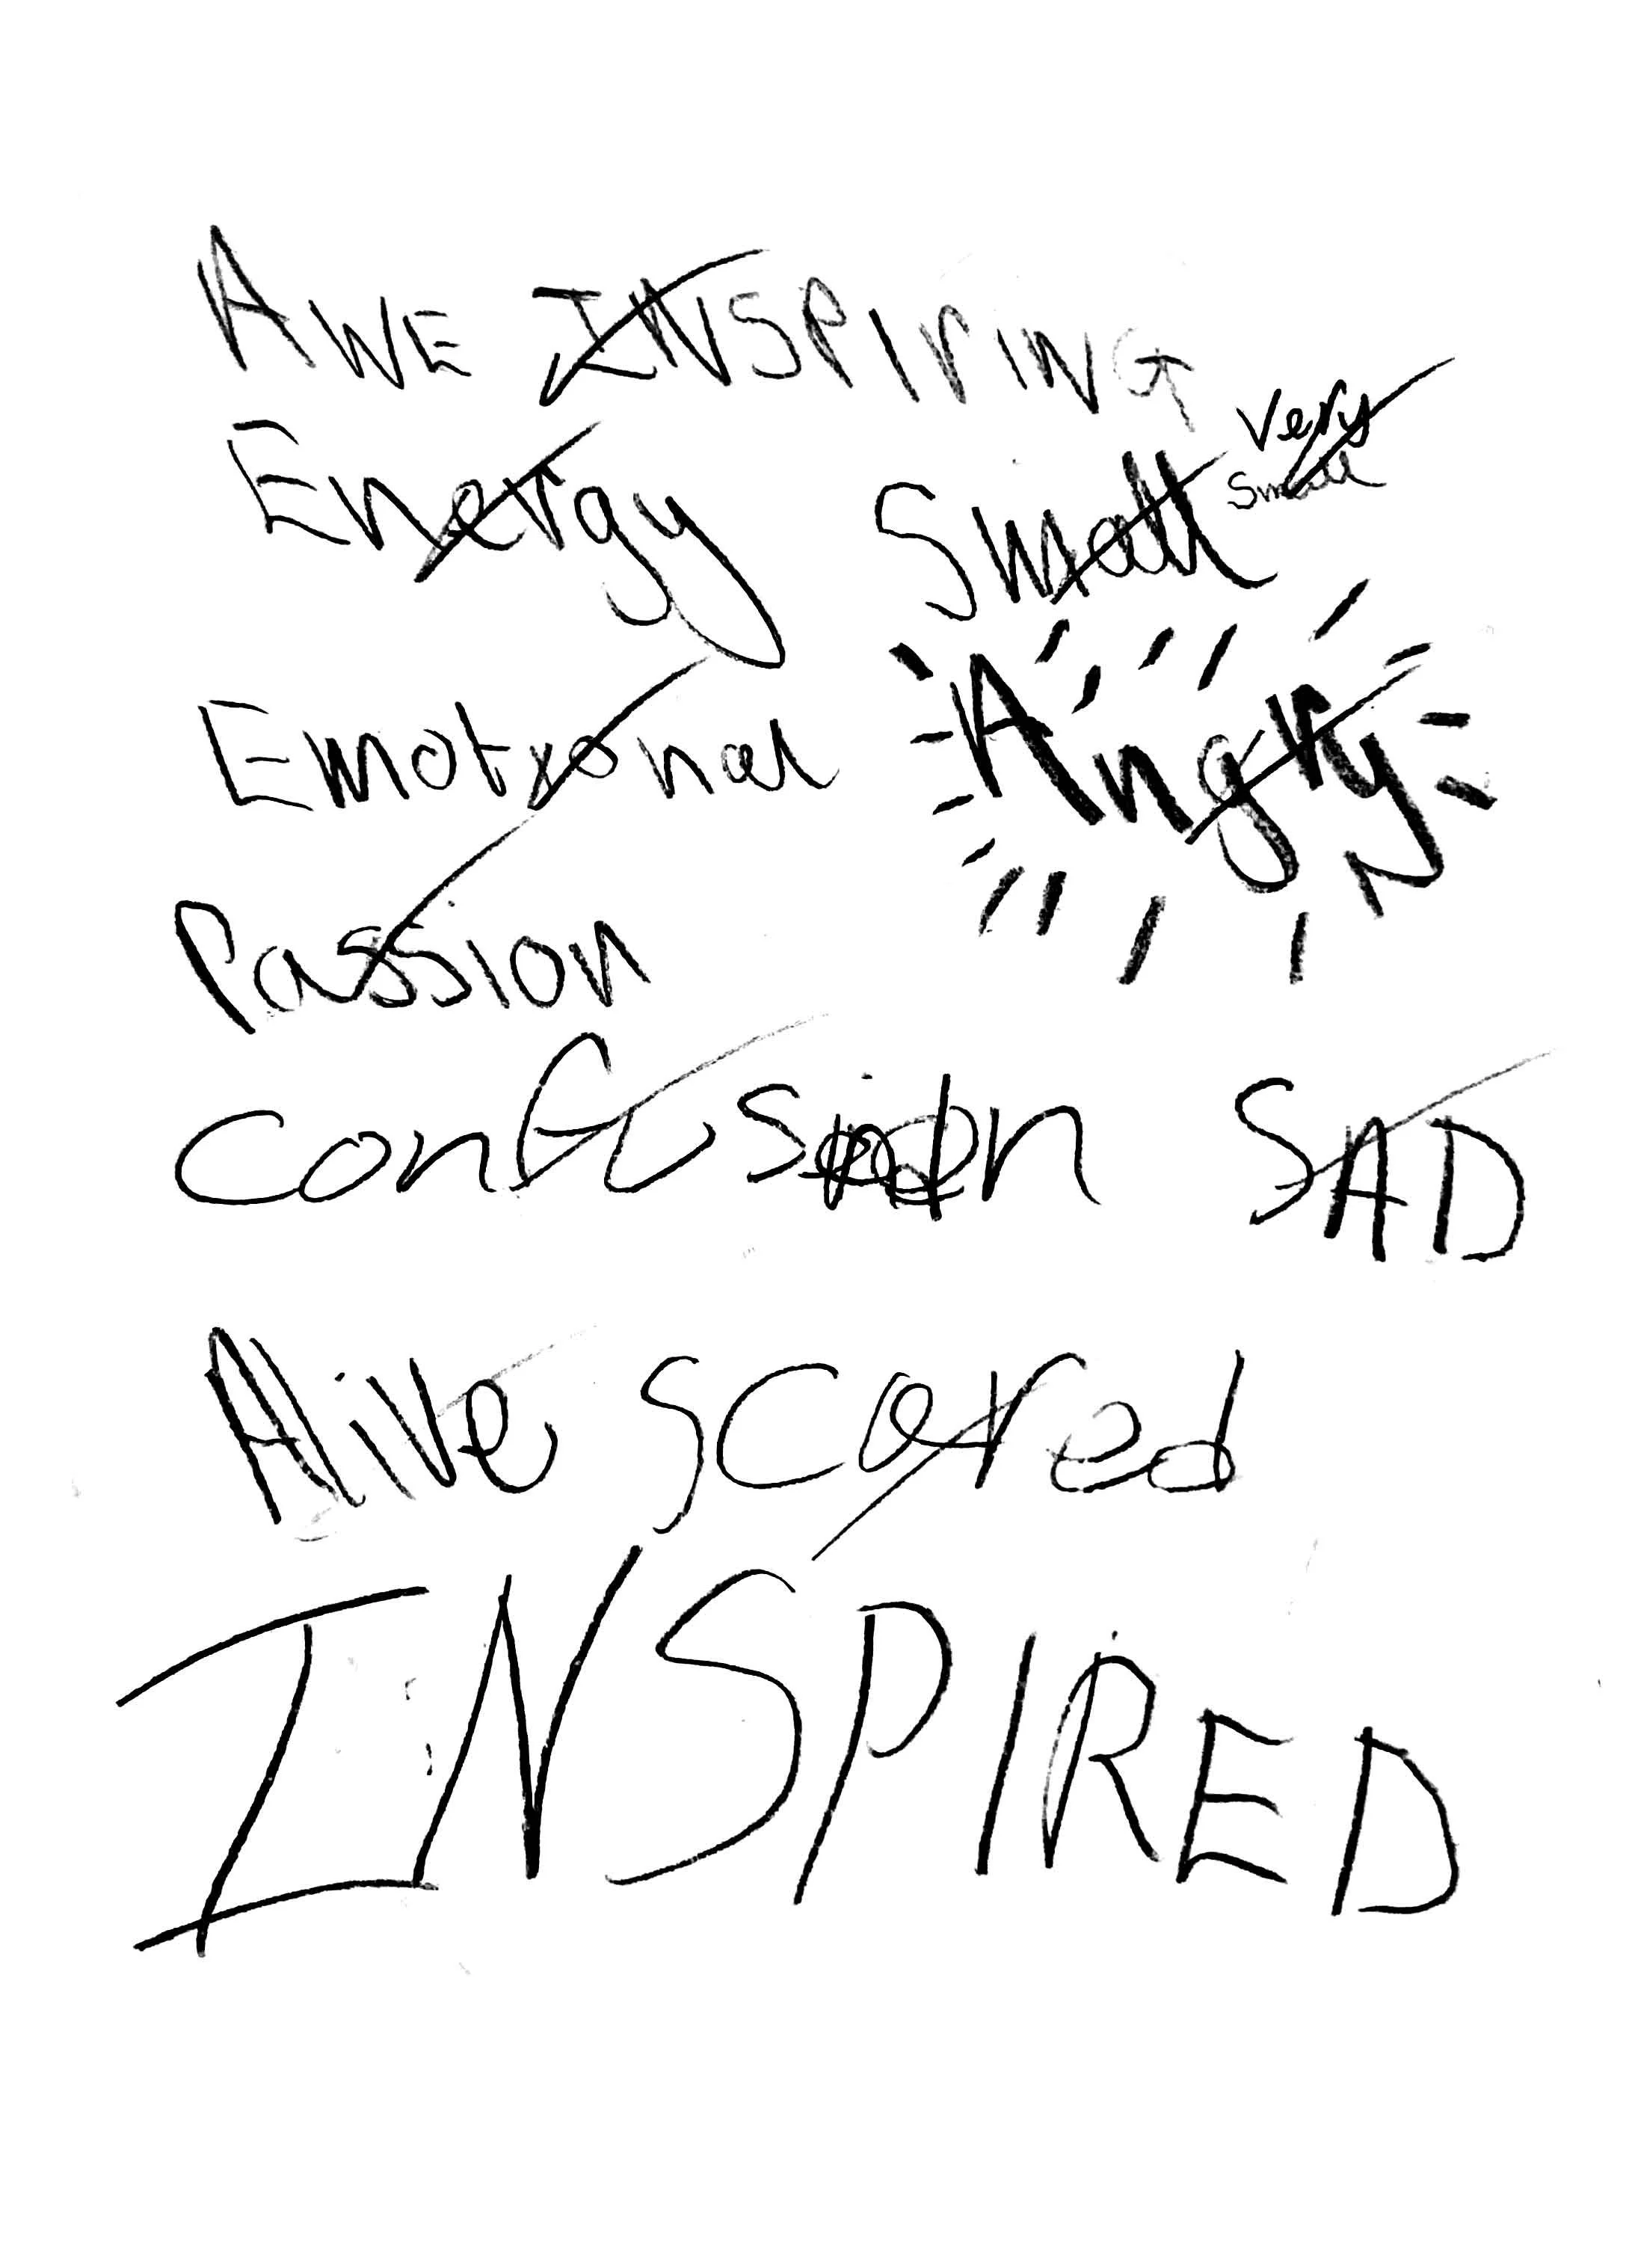 AWE INSPIRING
Energy Small very small
Emotional Angry
Passion
confusion SAD
Alive scared
INSPIRED